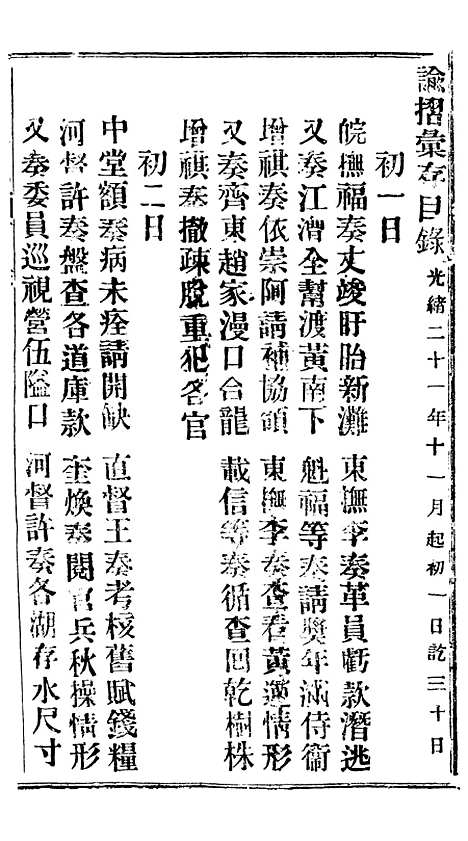 諭摺彙存目錄 光緒二十一年十一月起初一日訖三十日
初一日
皖撫福奏丈竣盱眙新灘 東撫李奏革員虧款潛逃
又奏江漕全幫渡黃南下 魁福等奏請獎年滿侍衞
增祺奏依崇阿請補協領 東撫李奏查看黃運情形
又奏齊東趙家漫口合龍 載信等奏循查回乾樹株
增祺奏撤疎脫重犯各官
初二日
中堂額奏病未痊請開缺 直督王奏考核舊賦錢糧
河督許奏盤查各道庫款 奎煥奏閱官兵秋操情形
又奏委員巡視營伍隘口 河督許奏各湖存水尺寸